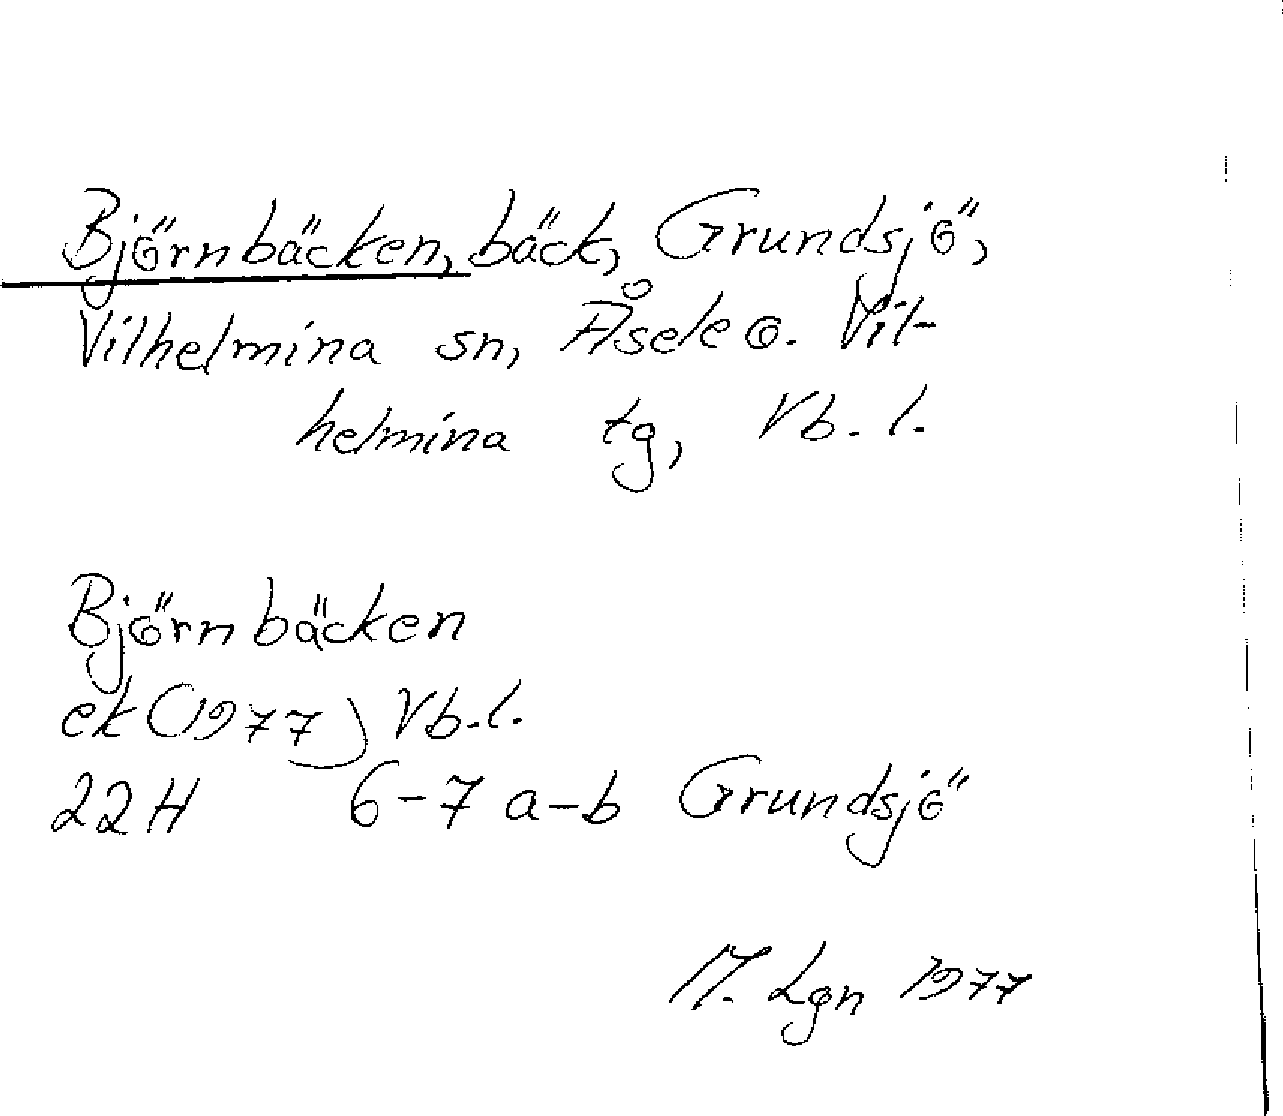 Björnbäcken, bäck, Grundsjö,
Vilhelmina sn, Åsele o. Vil-
helmina tg, Vb. l.
Björnbäcken
ek (1977) Vb. l.
22H 6-7 a-b Grundsjö
M. Lgn 1977